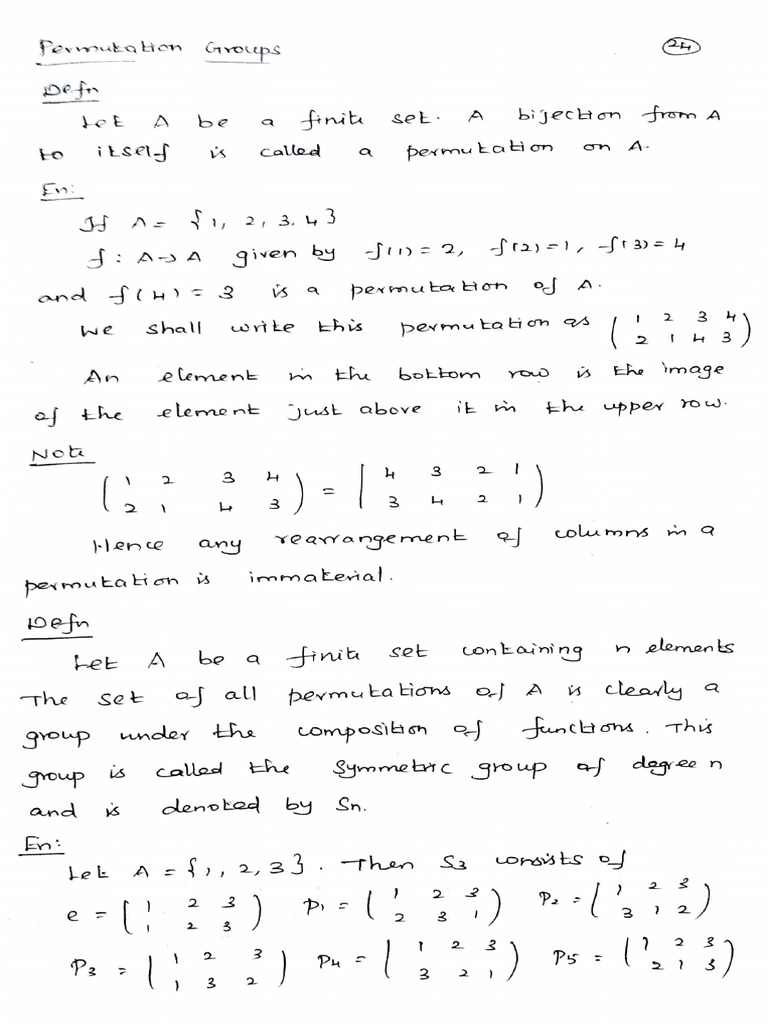 Permutation Groups 24
Defn
Let A be a finite set. A bijection from A
to itself is called a permutation on A.
En:
If A = {1, 2, 3, 4}
f : A→A given by f(1) = 2, f(2) = 1, f(3) = 4
and f(4) = 3 is a permutation of A.
We shall write this permutation as ( 1 2 3 4
2 1 4 3 )
An element in the bottom row is the image
of the element just above it in the upper row.
Note
( 1 2 3 4 ) = | 4 3 2 1 )
( 2 1 4 3 ) = | 3 4 2 1 )
Hence any rearrangement of columns in a
permutation is immaterial.
Defn
Let A be a finite set containing n elements
The set of all permutations of A is clearly a
group under the composition of functions. This
group is called the symmetric group of degree n
and is denoted by Sn.
En:
Let A = {1, 2, 3}. Then S3 consists of
e = ( 1 2 3 ) P1 = ( 1 2 3 ) P2 = ( 1 2 3 )
( 1 2 3 ) ( 2 3 1 ) ( 3 1 2 )
P3 = ( 1 2 3 ) P4 = ( 1 2 3 ) P5 = ( 1 2 3 )
( 1 3 2 ) ( 3 2 1 ) ( 2 1 3 )